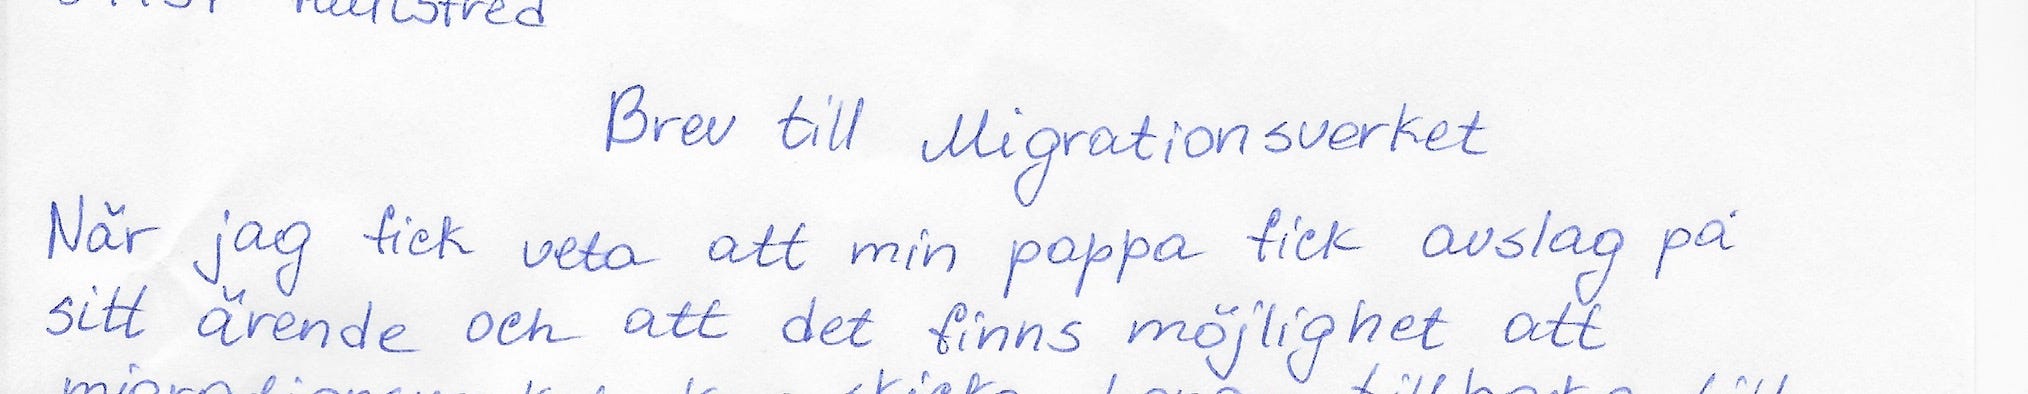 Brev till Migrationsverket
När jag fick veta att min pappa fick avslag på
sitt ärende och att det finns möjlighet att